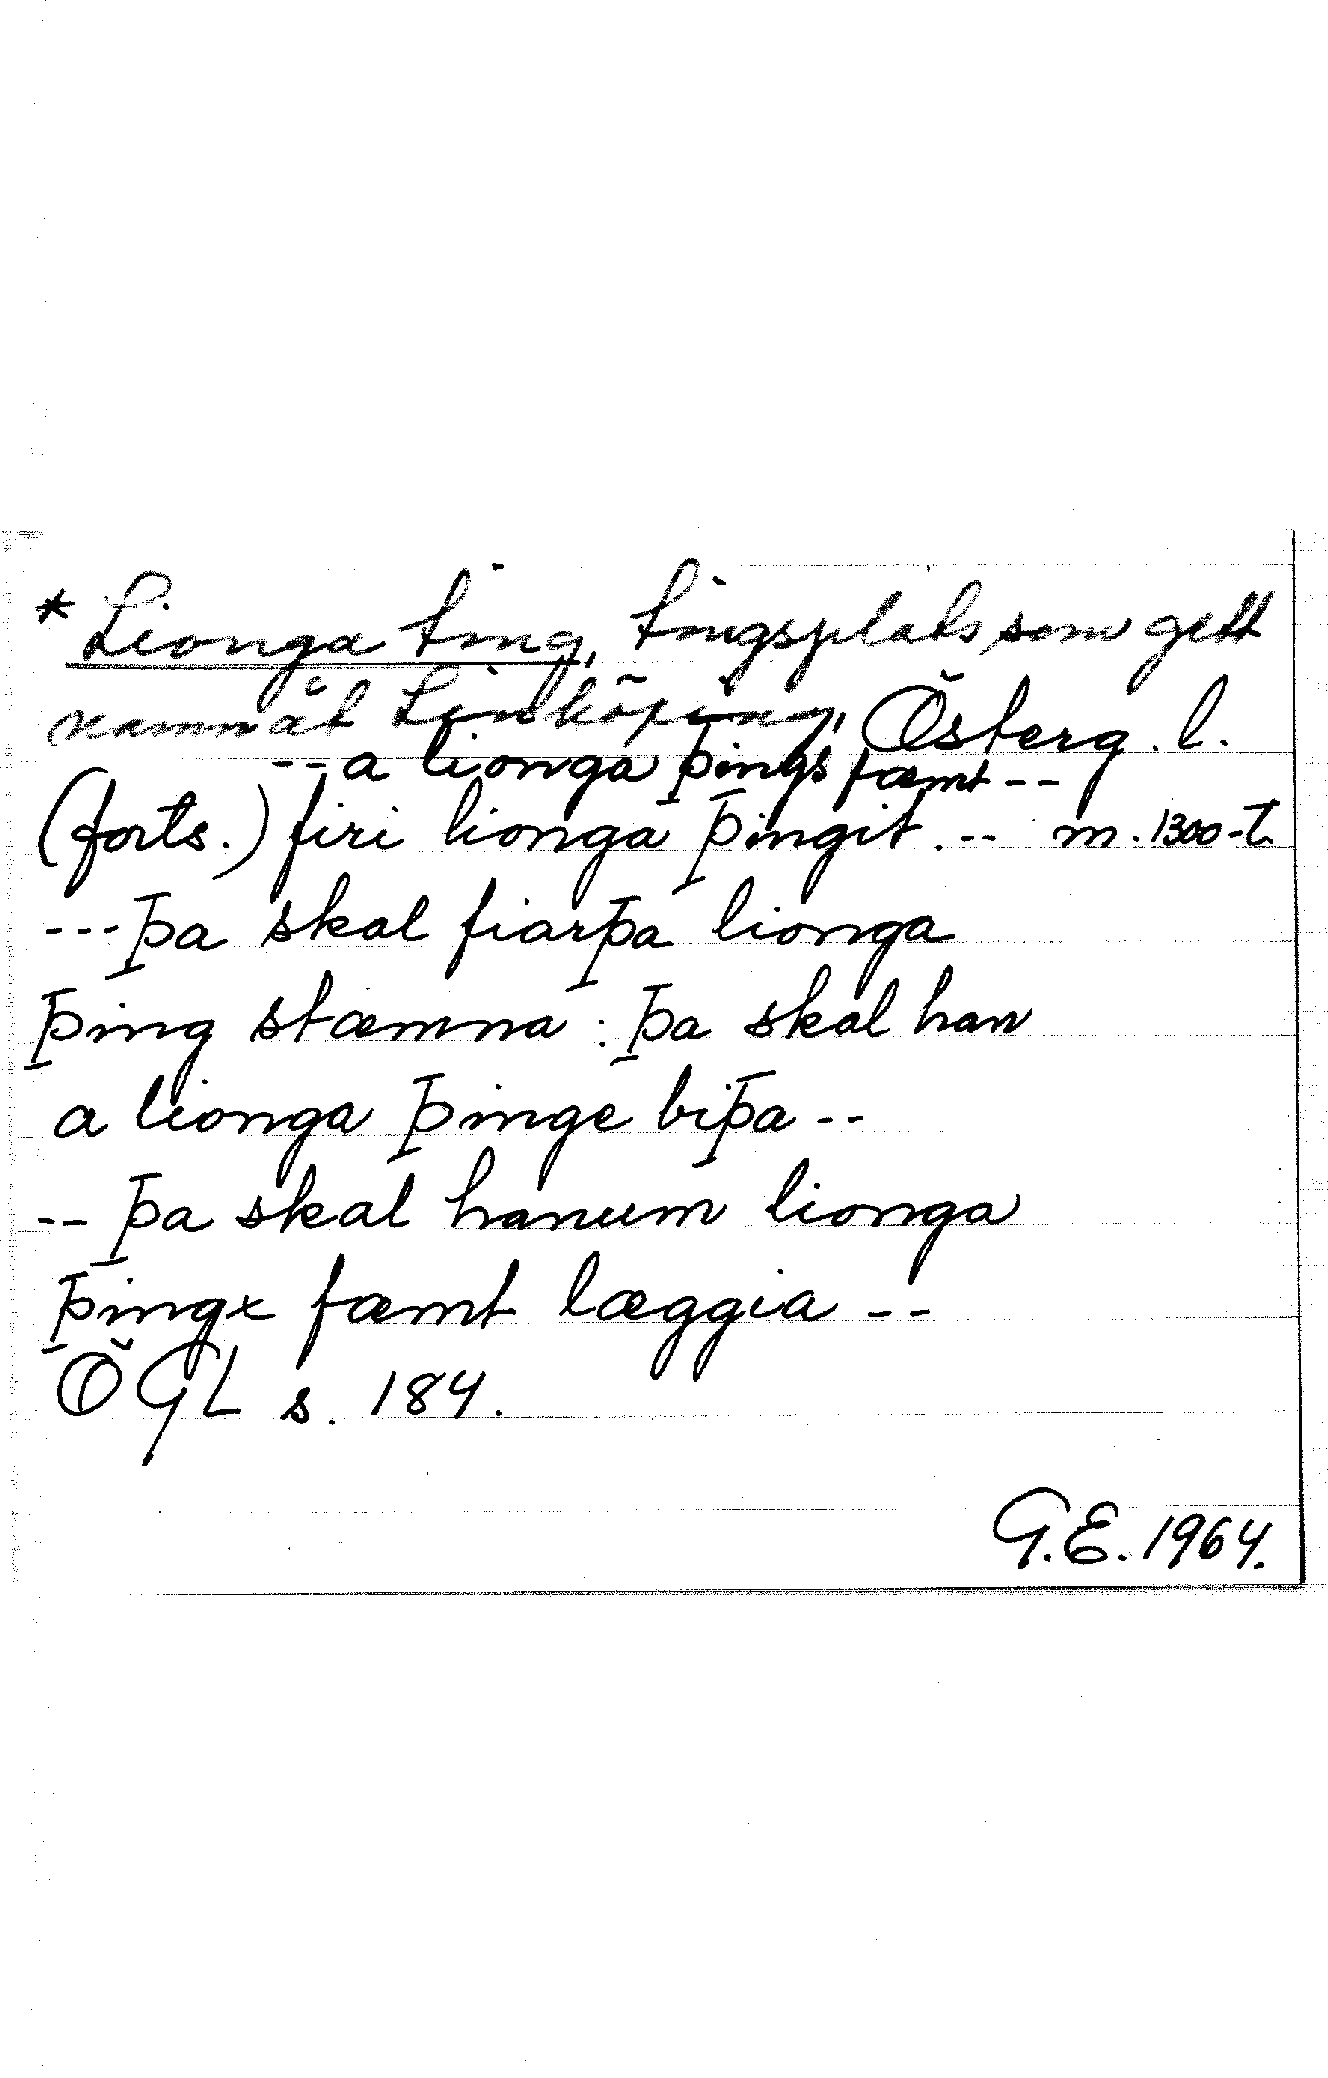 * Lionga ting, tingsplats som gett
namn åt Linköping, Österg. l.
-- a lionga þings fæmt --
(forts.) firi lionga þingit. -- m. 1300-t.
--- þa skal fiarþa lionga
þing stæmna : þa skal han
a lionga þinge biþa --
-- þa skal hanum lionga
þingx fæmt læggia --
ÖGL s. 184.
G.E. 1964.